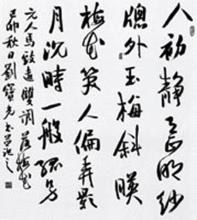 人初靜月正明紗
牕外玉梅斜暎
梅花笑人偏弄影
月沉時一般孤另
元人馬致遠雙調落梅風
秋日劉寶光書